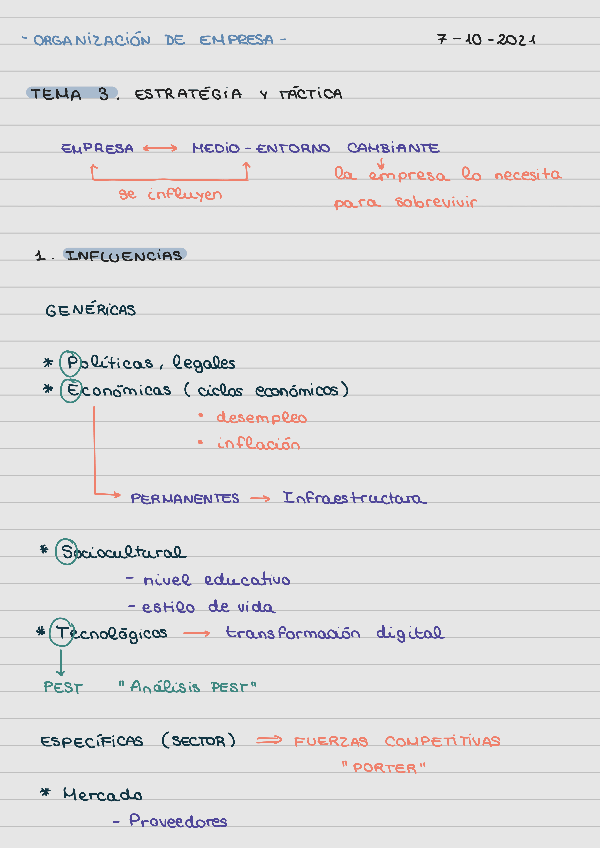 - ORGANIZACIÓN DE EMPRESA -
7-10-2021
TEMA 3. ESTRATÉGIA Y TÁCTICA
EMPRESA ↔ MEDIO-ENTORNO CAMBIANTE
se influyen
la empresa lo necesita
para sobrevivir
1. INFLUENCIAS
GENÉRICAS
* Políticas, legales
* Económicas (ciclos económicos)
• desempleo
• inflación
PERMANENTES → Infraestructara
* Sociocultural
- nivel educativo
- estilo de vida
* Tecnológicos → transformación digital
PEST "Análisis PEST"
ESPECÍFICAS (SECTOR) ⇒ FUERZAS COMPETITIVAS
"PORTER"
* Mercado
- Proveedores